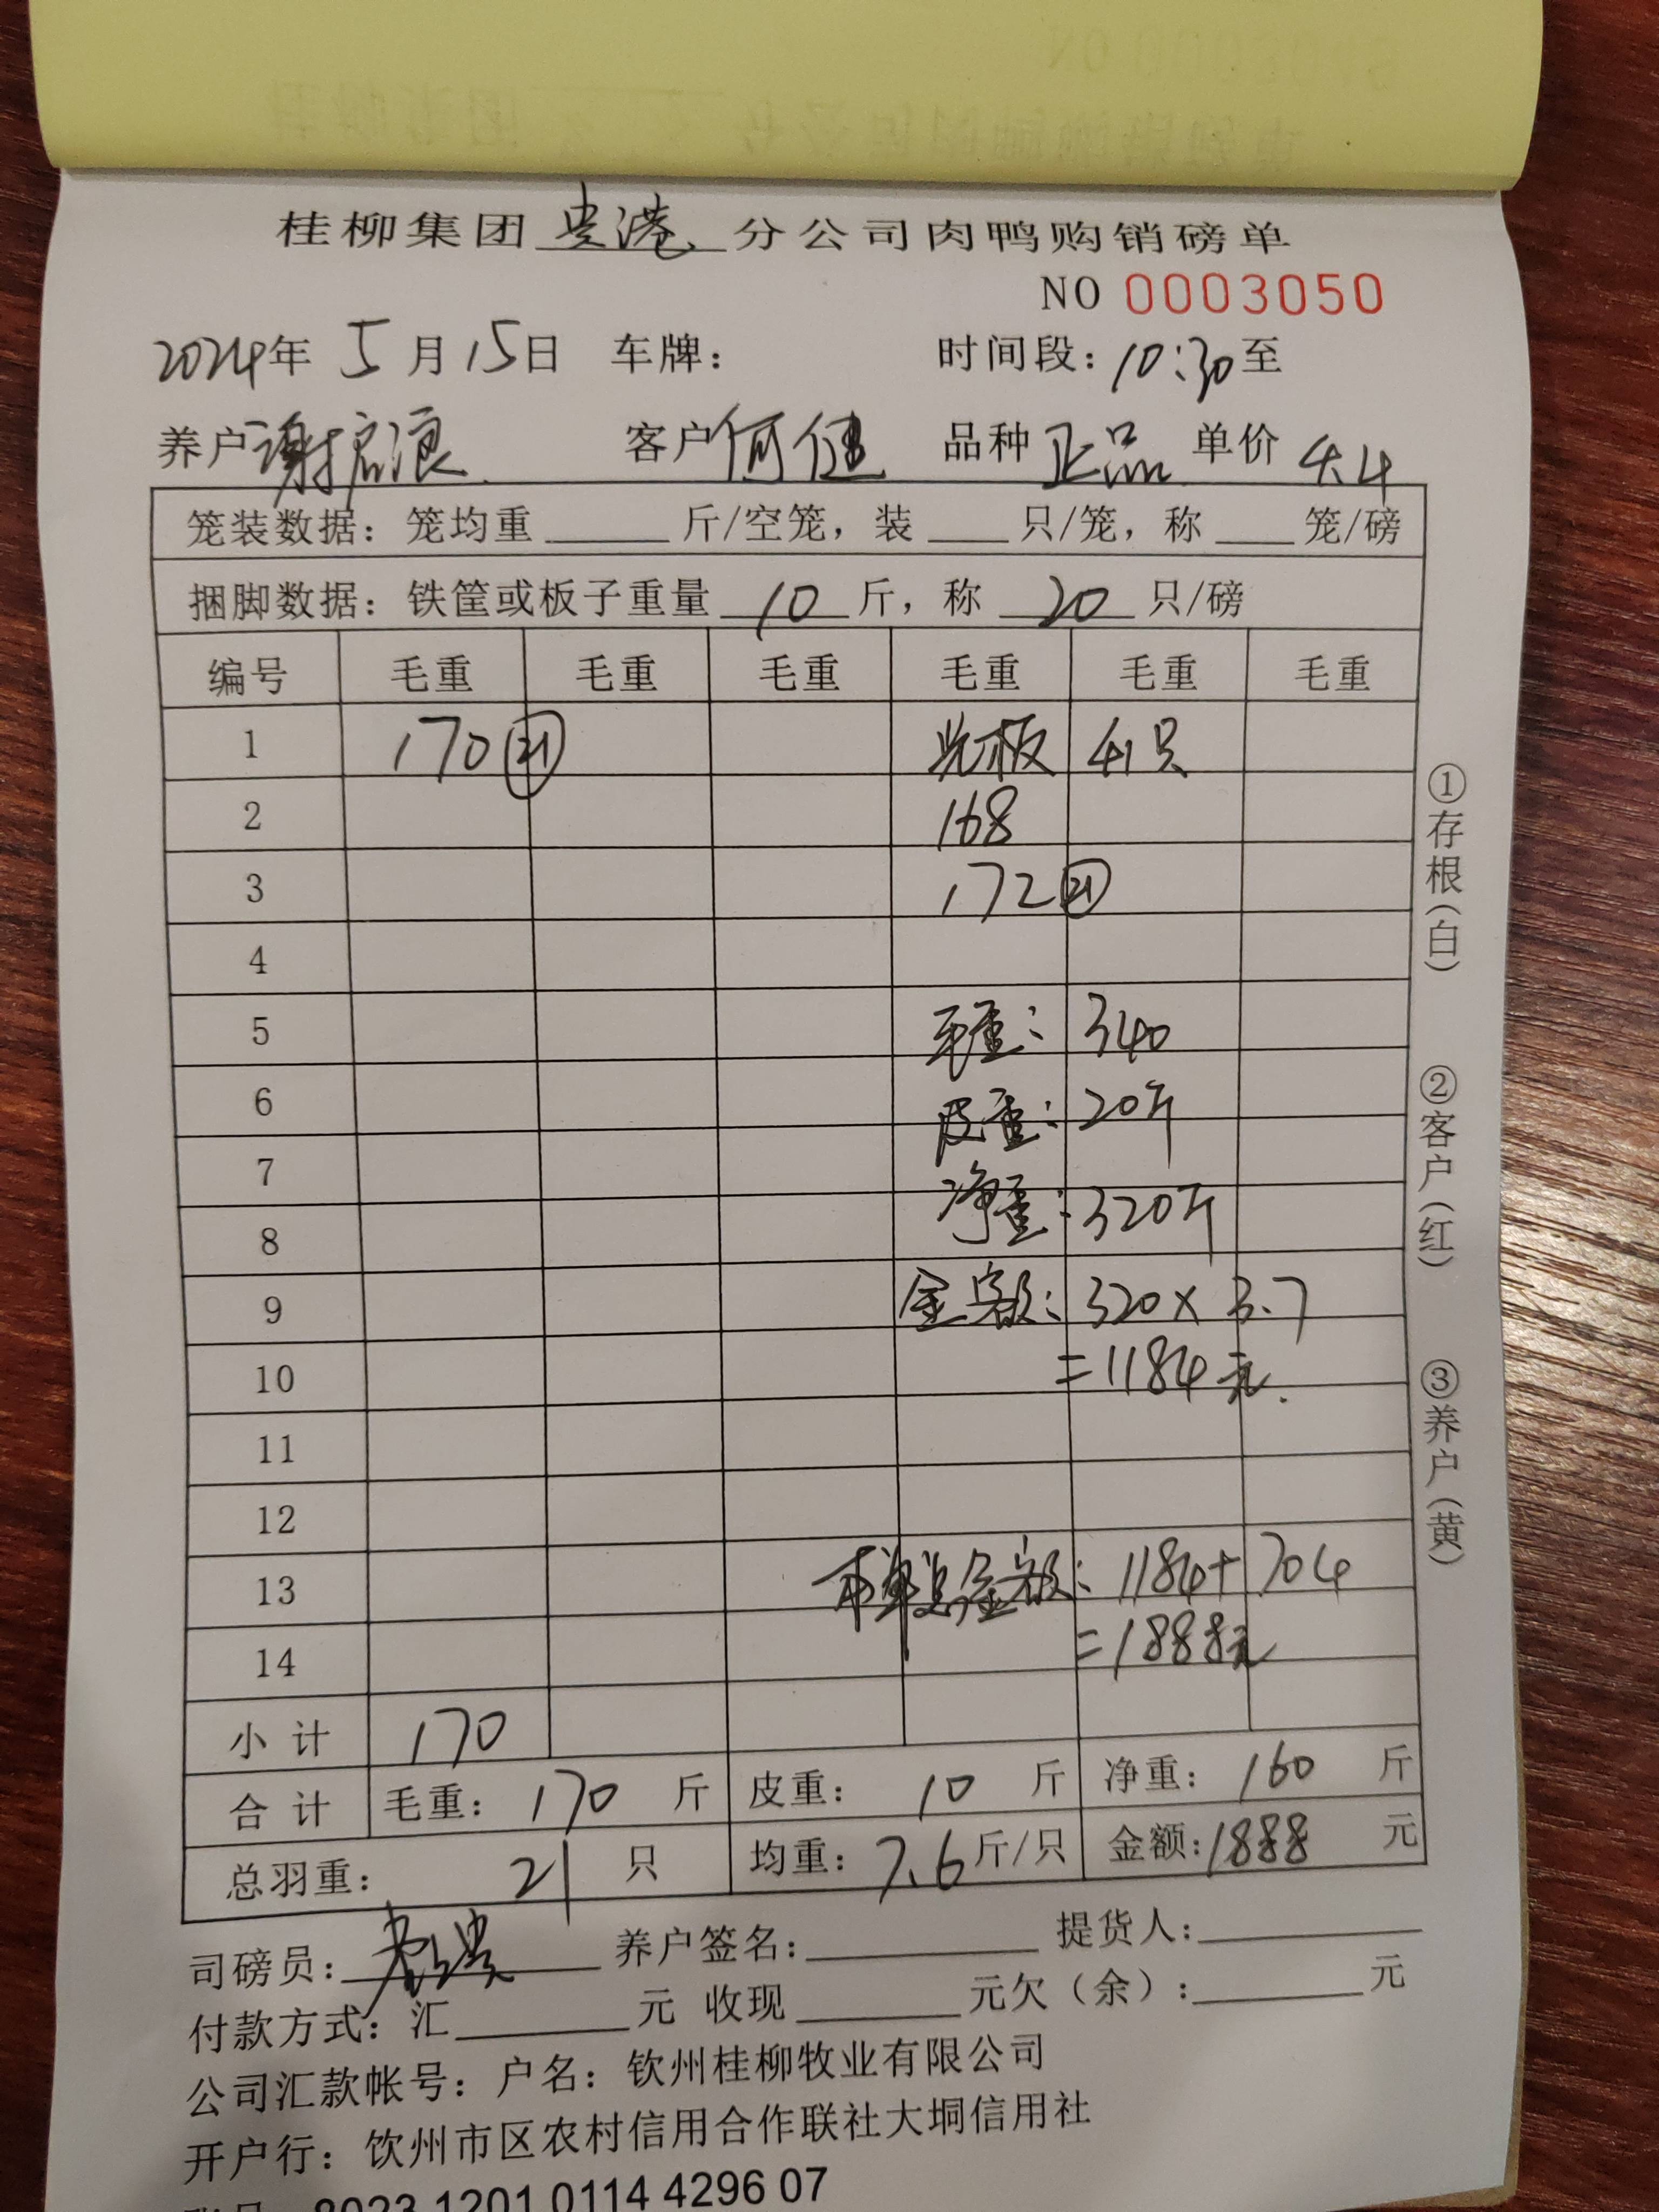 桂柳集团贵港分公司肉鸭购销磅单
NO 0003050
2024年 5月15日 车牌: 时间段:10:30至
养户谢启浪 客户何健 品种正品 单价4.4
笼装数据: 笼均重____斤/空笼, 装____只/笼, 称____笼/磅
捆脚数据: 铁筐或板子重量 10 斤, 称 20 只/磅
编号 毛重 毛重 毛重 毛重 毛重 毛重
1 170㉑ 光板 41只
2 168
3 172㉑
4
5 毛重: 340
6 皮重: 20斤
7
8 净重: 320斤
9 金额: 320×3.7
10 =1184元.
11
12
13 本单总金额: 1184+704
14 =1888元
小计 170
合计 毛重: 170 斤 皮重: 10 斤 净重: 160 斤
总羽重: 21 只 均重: 7.6斤/只 金额:1888 元
司磅员: 养户签名: 提货人:
付款方式: 汇____元 收现____元欠(余):____元
公司汇款帐号: 户名: 钦州桂柳牧业有限公司
开户行: 饮州市区农村信用合作联社大垌信用社
8023 1201 0114 4296 07
①存根(白)
②客户(红)
③养户(黄)